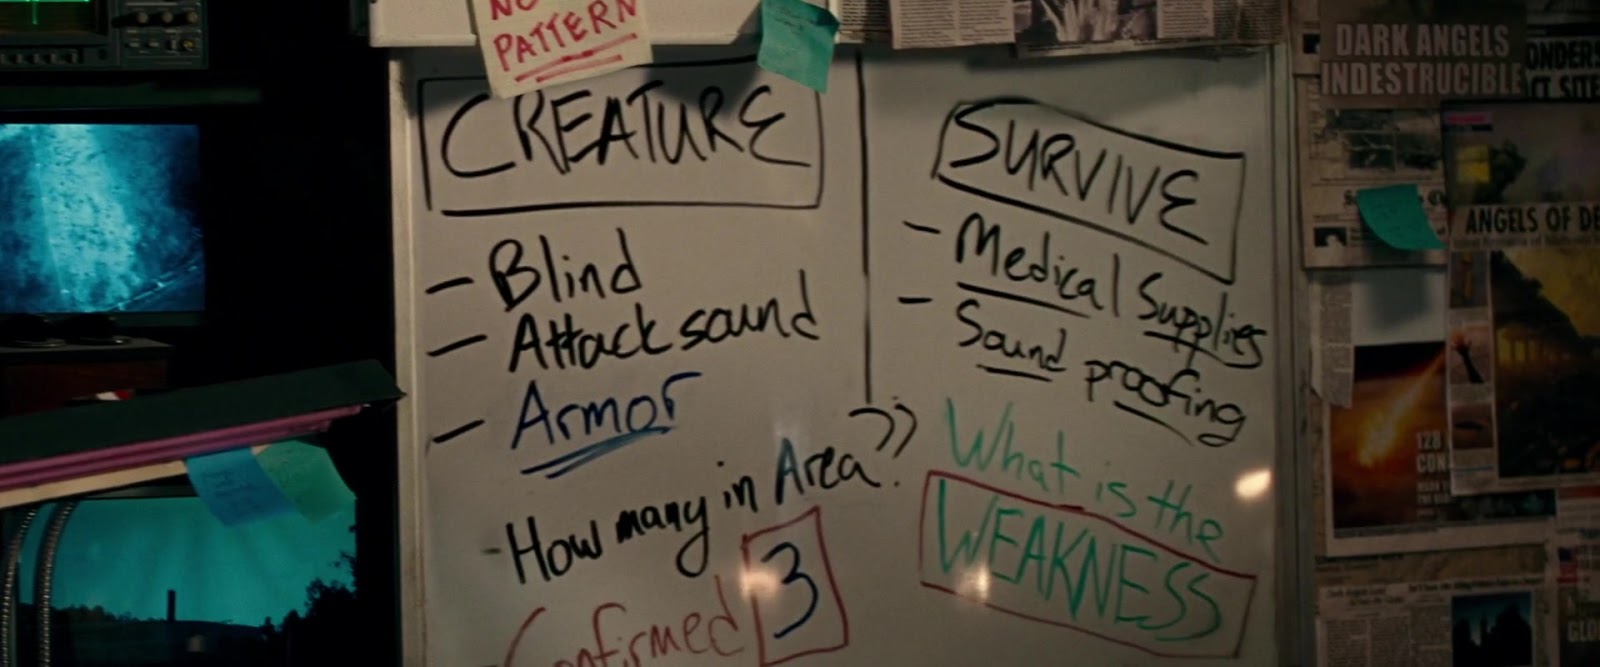 NO
PATTERN
CREATURE
- Blind
- Attack sound
- Armor
- How many in Area??
Confirmed 3
SURVIVE
- Medical Supplies
- Sound proofing
What is the
WEAKNESS
DARK ANGELS
INDESTRUCIBLE
ANGELS OF DE
128
CON
GLO